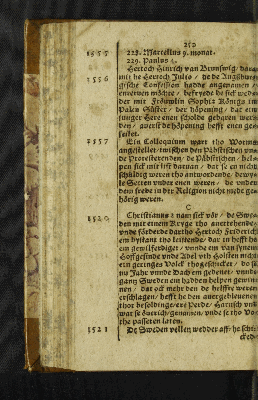 250
1555 228. Marcellus 9. monat.
229. Paulus 4.
Hertoch Hinrich van Brunswig,
1556 mit he Hertoch Julio, de de Augsburg-
gische Confession hadde angenamen,
enterven möchte, befryede he sick wedder
der mit Fröuwlin Sophia Köninges in
Palen Süster, der höpening, dat ein
junger Here einen scholde gebaren wer-
den, averst de höpening hefft enen ge-
feilet.
1557 Ein Colloquium wart tho Worms
angestellet, twischen den Päbstischen vnde
de Protesterenden, de Päbstischen
pen sick mit list daruan, dat se en nicht
schüldig weren tho antwordende,
le Secten vnder enen weren, de vnder
dem frede in der Religion nicht mede ge-
hörig weren.
C
1520 Christianus 2 nam sick vör, de Swe-
den mit einem Kryge tho anertehende,
vnde förderde dartho Hertoch Friderich
em bystant tho leistende, dar in hefft he
em gewilferdiget, vnde em van synem
Hoffgesinde vnde Adel vth Holsten nicht
ein geringes Volck thogeschicket, de
nu Jahr vnnde Dach em gedenet, vnnde
gantz Sweden em hadden helpen gewin-
nen, dat och mehr den de helffte weren
erschlagen, hefft he den auergebleuenen
thor besoldinge, ere Perde, Harnsch vnde
wat se överich, genamen, vnde se tho Vo-
the passeren laten.
1521 De Sweden vellen wedder aff, he schi-
cked